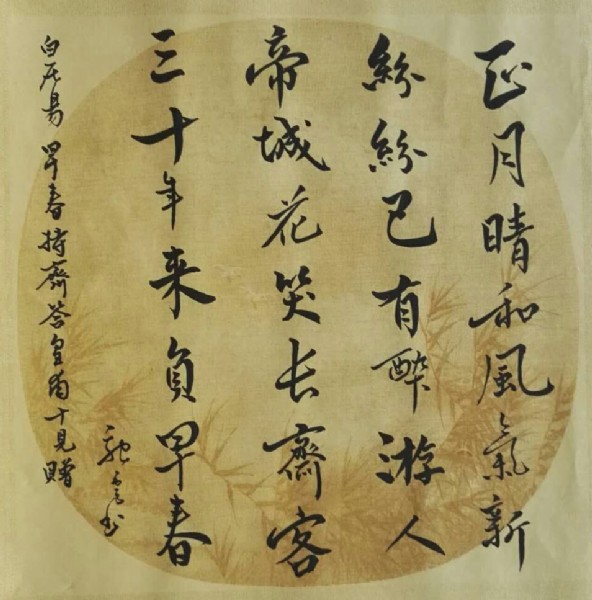 正月晴和風氣新
紛紛已有酔游人
帝城花笑长齋客
三十年来負早春
白居易 早春持齋答皇甫十見贈
书